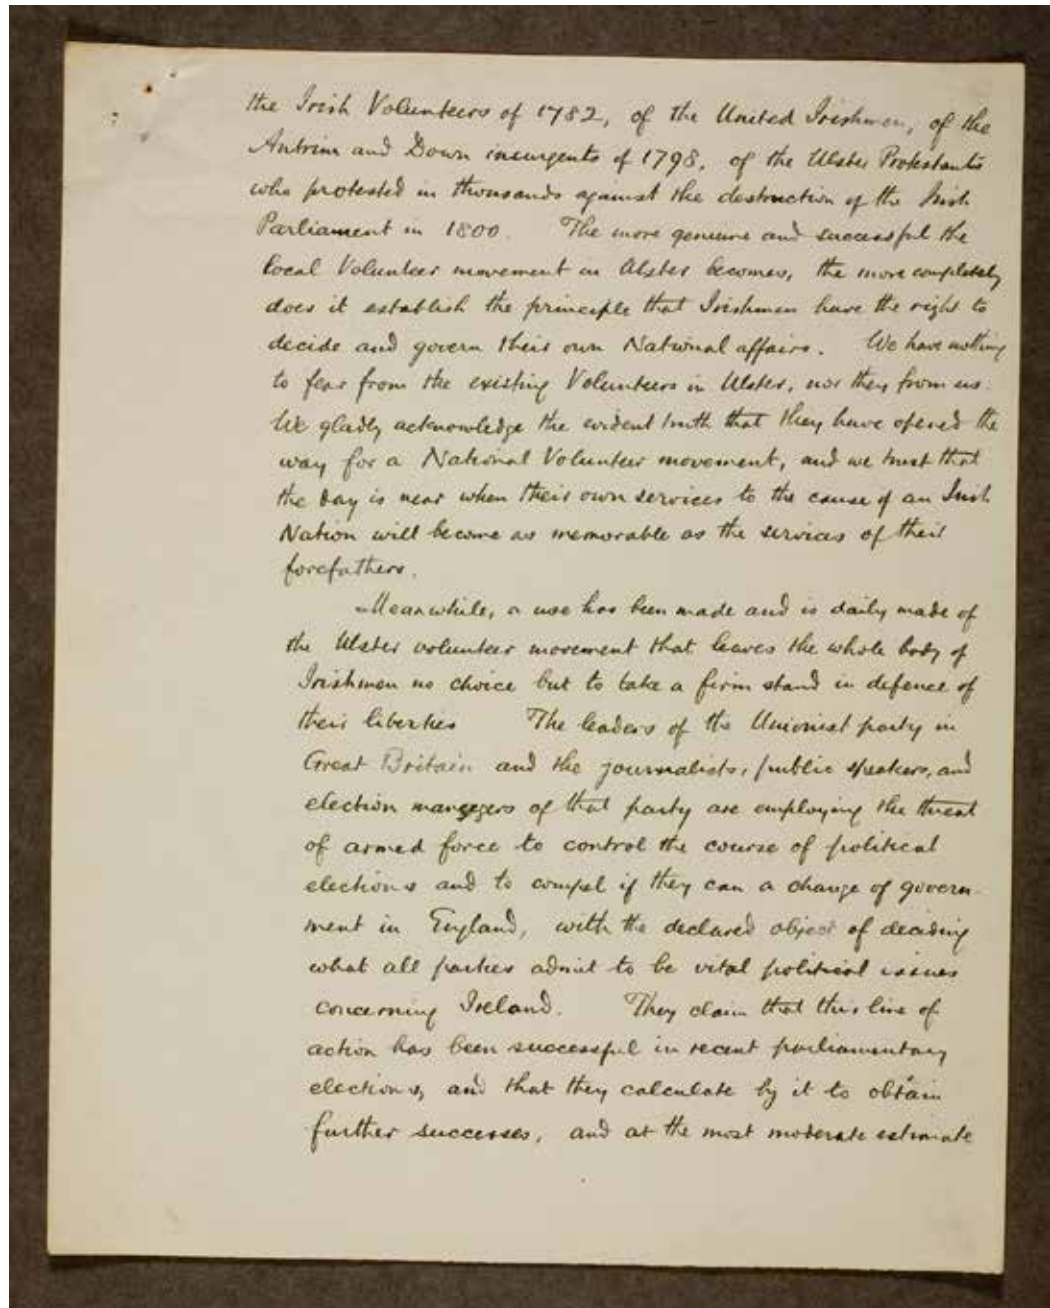 the Irish Volunteers of 1782, of the United Irishmen, of the
Antrim and Down insurgents of 1798, of the Ulster Protestants
who protested in thousands against the destruction of the Irish
Parliament in 1800. The more genuine and successful the
local Volunteer movement in Ulster becomes, the more completely
does it establish the principle that Irishmen have the right to
decide and govern their own National affairs. We have nothing
to fear from the existing Volunteers in Ulster, nor they from us.
We gladly acknowledge the evident truth that they have opened the
way for a National Volunteer movement, and we trust that
the day is near when their own services to the cause of an Irish
Nation will become as memorable as the services of their
forefathers.
Meanwhile, a use has been made and is daily made of
the Ulster volunteer movement that leaves the whole body of
Irishmen no choice but to take a firm stand in defence of
their liberties The leaders of the Unionist party in
Great Britain and the journalists, public speakers, and
election managers of that party are employing the threat
of armed force to control the course of political
elections and to compel if they can a change of govern-
ment in England, with the declared object of deciding
what all parties admit to be vital political issues
concerning Ireland. They claim that this line of
action has been successful in recent parliamentary
elections, and that they calculate by it to obtain
further successes, and at the most moderate estimate